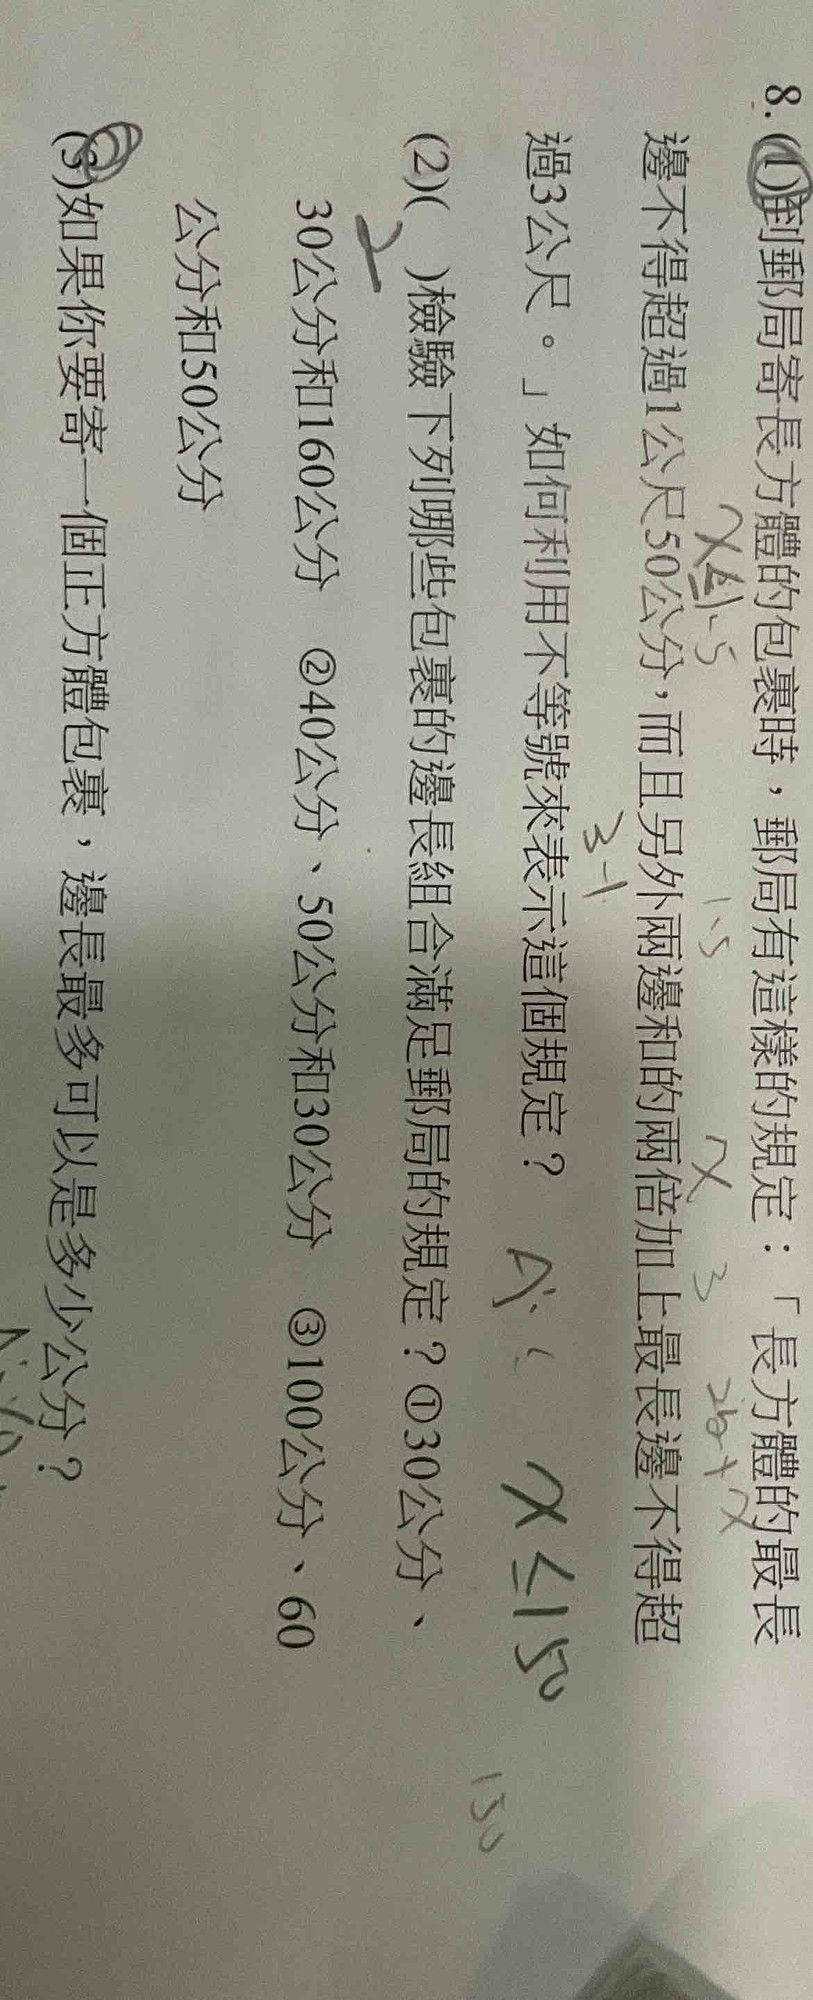 8.(1)到郵局寄長方體的包裹時，郵局有這樣的規定：「長方體的最長
x≤1.5 1.5 x 3 2b+x
邊不得超過1公尺50公分，而且另外兩邊和的兩倍加上最長邊不得超
3-1.
過3公尺。」如何利用不等號來表示這個規定？ A: x≤150
150
(2)( )檢驗下列哪些包裹的邊長組合滿足郵局的規定？①30公分、
2
30公分和160公分 ②40公分、50公分和30公分 ③100公分、60
公分和50公分
(3)如果你要寄一個正方體包裹，邊長最多可以是多少公分？